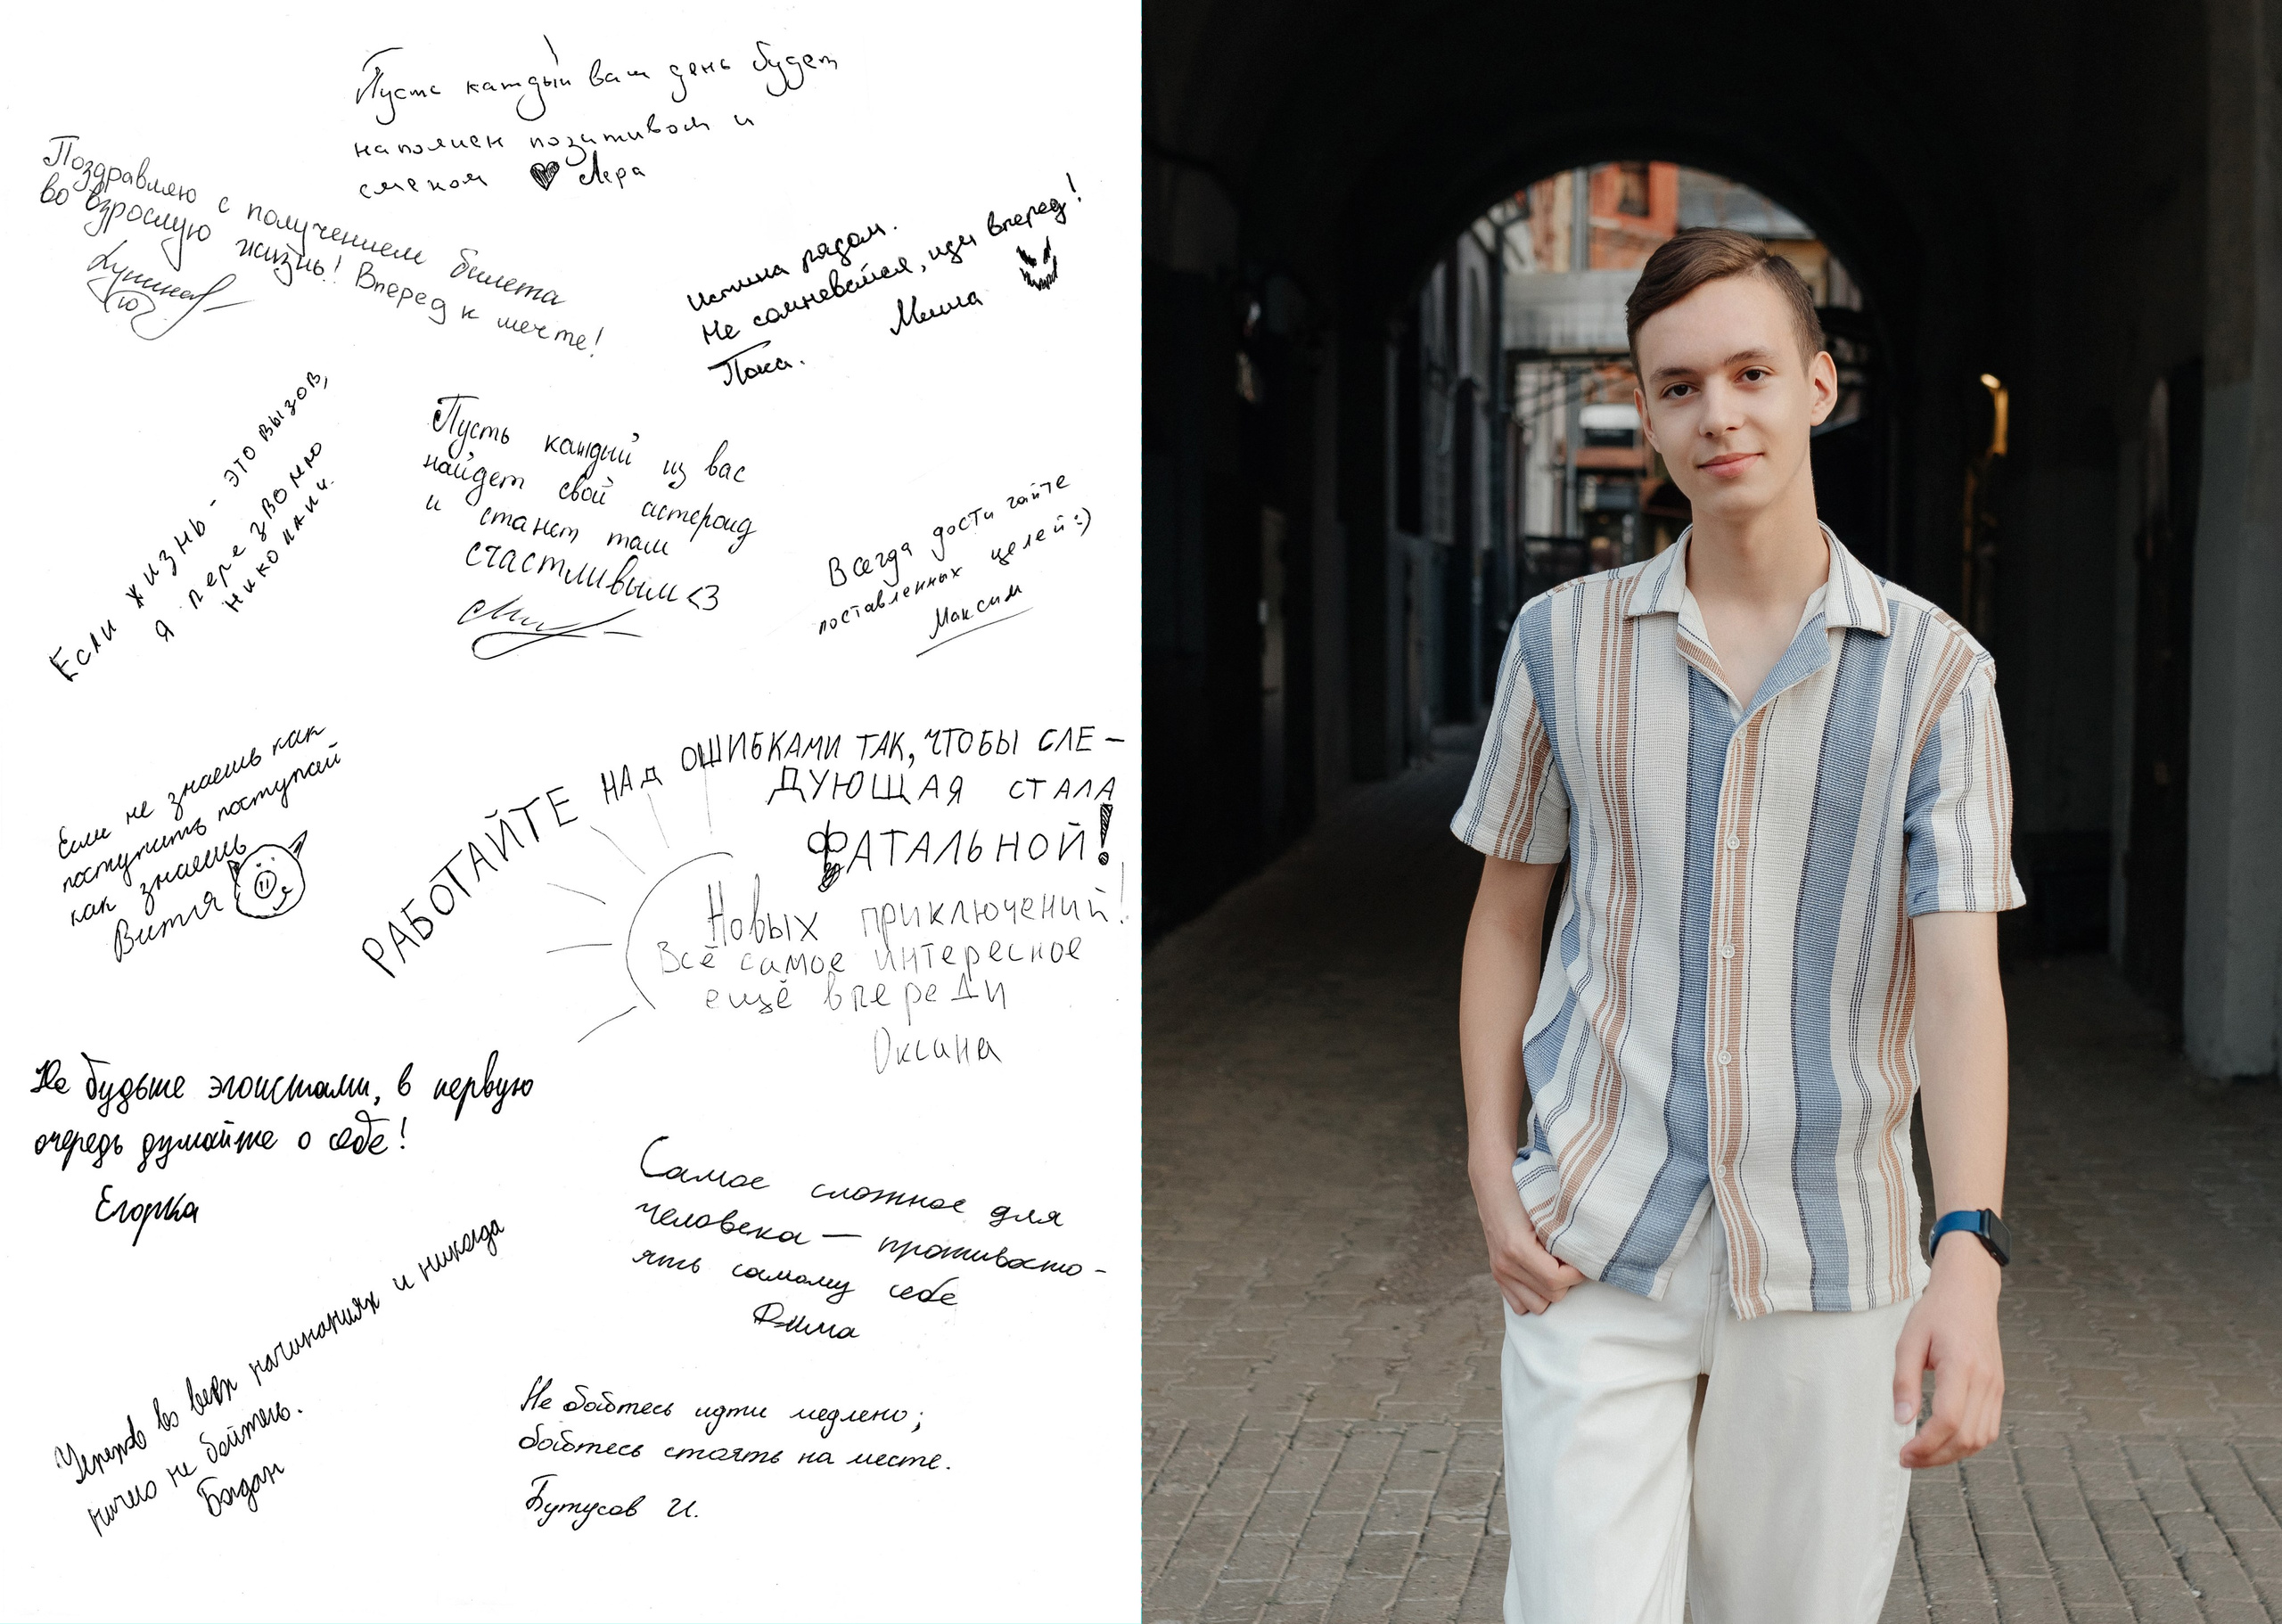 Пусть каждый ваш день будет
наполнен позитивом и
смехом Лера
Поздравляю с получением билета
во взрослую жизнь! Вперед к мечте!
Истина рядом.
Не сомневайся, иди вперед!
Пока. Миша
Если жизнь - это вызов,
я перезвоню
Пусть каждый из вас
найдет свой астероид
и станет там
счастливым <3
Всегда достигайте
поставленных целей :)
Максим
Если не знаешь как
поступить поступай
как знаешь
Витля
РАБОТАЙТЕ НАД ОШИБКАМИ ТАК, ЧТОБЫ СЛЕ-
ДУЮЩАЯ СТАЛА
ФАТАЛЬНОЙ!
Новых приключений!
Всё самое интересное
ещё впереди
Оксана
Не будьте эгоистами, в первую
очередь думайте о себе!
Егорка
Самое сложное для
человека — противосто-
ять самому себе
Дима
Успехов во всех начинаниях и никогда
ничего не бойтесь.
Богдан
Не бойтесь идти медлено;
бойтесь стоять на месте.
Бутусов И.